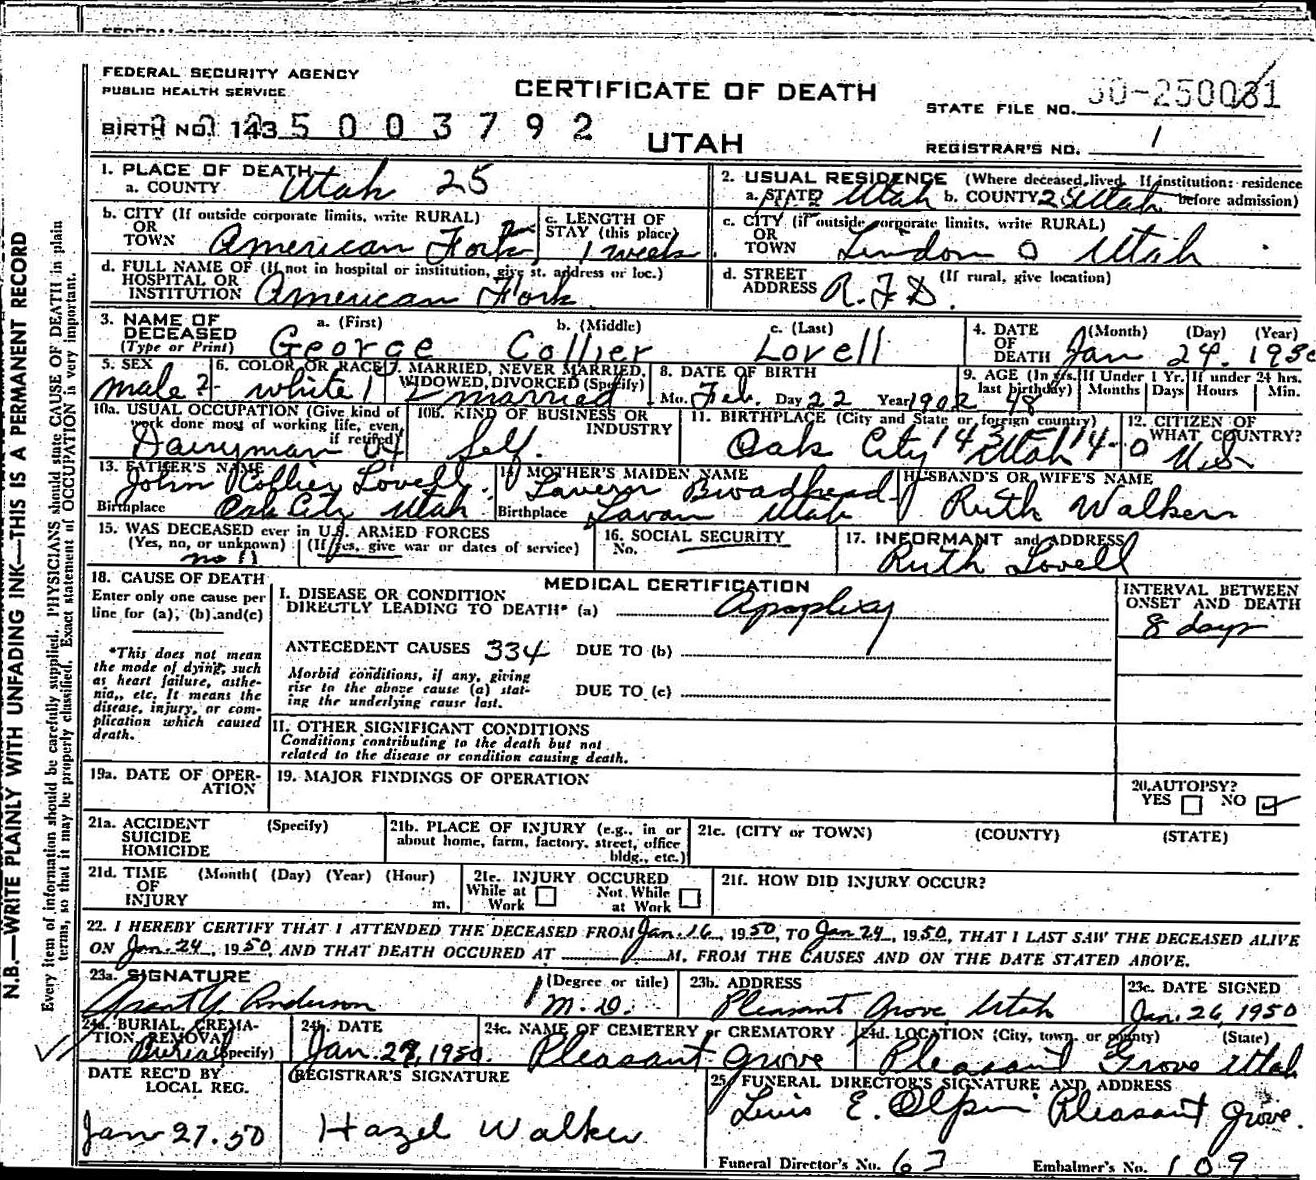 FEDERAL SECURITY AGENCY
PUBLIC HEALTH SERVICE
CERTIFICATE OF DEATH
STATE FILE NO. 50-250031
BIRTH NO. 143 5 0 0 3 7 9 2
UTAH
REGISTRAR'S NO. 1
1. PLACE OF DEATH
a. COUNTY Utah 25
2. USUAL RESIDENCE (Where deceased lived. If institution: residence before admission)
a. STATE Utah b. COUNTY 25 Utah
b. CITY (If outside corporate limits, write RURAL)
OR
TOWN American Fork
c. LENGTH OF
STAY (this place)
1 week
c. CITY (if outside corporate limits, write RURAL)
OR
TOWN Lindon 0 Utah
d. FULL NAME OF (If not in hospital or institution, give st. address or loc.)
HOSPITAL OR
INSTITUTION American Fork
d. STREET (If rural, give location)
ADDRESS R.F.D.
3. NAME OF
DECEASED
(Type or Print)
a. (First) b. (Middle) c. (Last)
George Collier Lovell
4. DATE (Month) (Day) (Year)
OF
DEATH Jan 24. 1950
5. SEX
male 2
6. COLOR OR RACE
white 1
7. MARRIED, NEVER MARRIED,
WIDOWED, DIVORCED (Specify)
married
8. DATE OF BIRTH
Mo. Feb. Day 22 Year 1902
9. AGE (In yrs. last birthday) 48
If Under 1 Yr. Months Days
If under 24 hrs. Hours Min.
10a. USUAL OCCUPATION (Give kind of
work done most of working life, even
if retired)
Dairyman 04
10B. KIND OF BUSINESS OR
INDUSTRY
Self.
11. BIRTHPLACE (City and State or foreign country)
Oak City 143 Utah 14-0
12. CITIZEN OF
WHAT COUNTRY?
U.S.
13. FATHER'S NAME
John Collier Lovell
Birthplace Oak City Utah
14. MOTHER'S MAIDEN NAME
Lavern Broadhead
Birthplace Levan Utah
HUSBAND'S OR WIFE'S NAME
Ruth Walker
15. WAS DECEASED ever in U.S. ARMED FORCES
(Yes, no, or unknown) (If yes, give war or dates of service)
no 11
16. SOCIAL SECURITY
No.
17. INFORMANT and ADDRESS
Ruth Lovell
18. CAUSE OF DEATH
Enter only one cause per
line for (a), (b) and (c)
*This does not mean
the mode of dying, such
as heart failure, asthe-
nia, etc. It means the
disease, injury, or com-
plication which caused
death.
MEDICAL CERTIFICATION
I. DISEASE OR CONDITION
DIRECTLY LEADING TO DEATH* (a) Apoplexy
INTERVAL BETWEEN
ONSET AND DEATH
8 days
ANTECEDENT CAUSES 334 DUE TO (b)
Morbid conditions, if any, giving
rise to the above cause (a) stat-
ing the underlying cause last.
DUE TO (c)
II. OTHER SIGNIFICANT CONDITIONS
Conditions contributing to the death but not
related to the disease or condition causing death.
19a. DATE OF OPER-
ATION
19. MAJOR FINDINGS OF OPERATION
20. AUTOPSY?
YES NO
21a. ACCIDENT (Specify)
SUICIDE
HOMICIDE
21b. PLACE OF INJURY (e.g., in or
about home, farm, factory, street, office
bldg., etc.)
21c. (CITY or TOWN) (COUNTY) (STATE)
21d. TIME (Month( (Day) (Year) (Hour)
OF
INJURY m.
21e. INJURY OCCURED
While at Work Not While at Work
21f. HOW DID INJURY OCCUR?
22. I HEREBY CERTIFY THAT I ATTENDED THE DECEASED FROM Jan. 16, 1950, TO Jan 24, 1950, THAT I LAST SAW THE DECEASED ALIVE
ON Jan. 24, 1950, AND THAT DEATH OCCURED AT M, FROM THE CAUSES AND ON THE DATE STATED ABOVE.
23a. SIGNATURE (Degree or title)
Grant Y. Anderson M.D.
23b. ADDRESS
Pleasant Grove Utah
23c. DATE SIGNED
Jan. 26, 1950
24a. BURIAL, CREMA-
TION REMOVAL
(Specify) Burial
24b. DATE
Jan. 27, 1950.
24c. NAME OF CEMETERY or CREMATORY
Pleasant Grove
24d. LOCATION (City, town, or county) (State)
Pleasant Grove Utah
DATE REC'D BY
LOCAL REG.
Jan 27.50
REGISTRAR'S SIGNATURE
Hazel Walker
25. FUNERAL DIRECTOR'S SIGNATURE AND ADDRESS
E. Olpin Pleasant Grove.
Funeral Director's No. 63 Embalmer's No. 109
N.B.—WRITE PLAINLY WITH UNFADING INK—THIS IS A PERMANENT RECORD
Every item of information should be carefully supplied. PHYSICIANS should state CAUSE OF DEATH in plain
terms, so that it may be properly classified. Exact statement of OCCUPATION is very important.